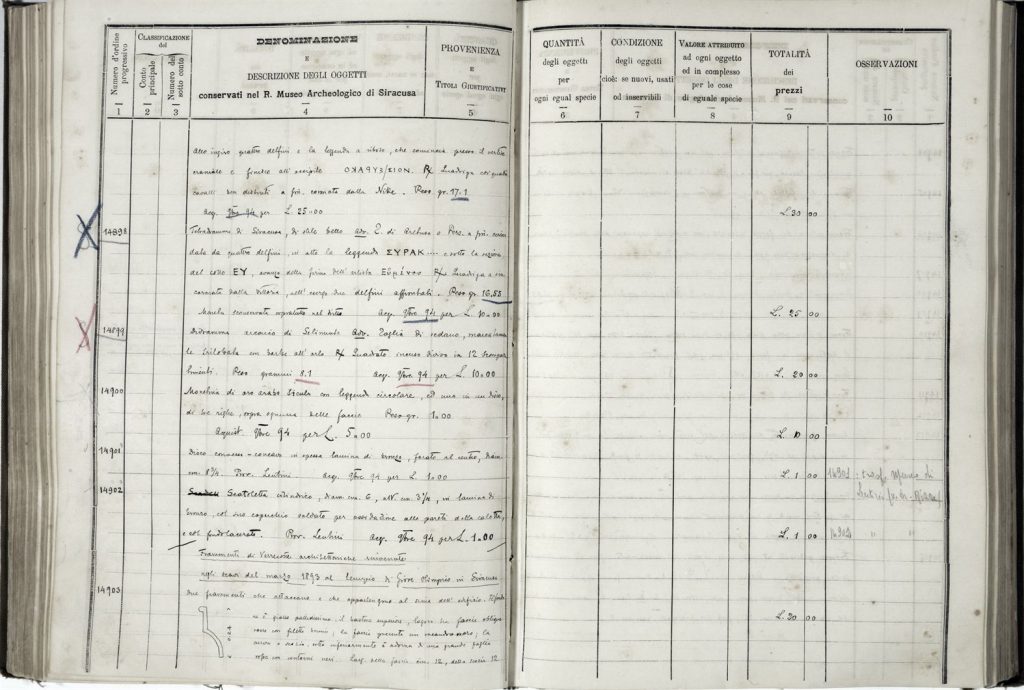 Numero d'ordine progressivo
CLASSIFICAZIONE del
Conto principale
Numero del sotto conto
DENOMINAZIONE
E
DESCRIZIONE DEGLI OGGETTI
conservati nel R. Museo Archeologico di Siracusa
PROVENIENZA
E
TITOLI GIUSTIFICATIVI
1 2 3 4 5
QUANTITÀ
degli oggetti
per
ogni egual specie
6
CONDIZIONE
degli oggetti
cioè: se nuovi, usati
od inservibili
7
VALORE ATTRIBUITO
ad ogni oggetto
ed in complesso
per le cose
di eguale specie
8
TOTALITÀ
dei
prezzi
9
OSSERVAZIONI
10
Allo ingiro quattro delfini e la leggenda a ritroso, che comincia presso il vertice
craniale e all'occipite. R/ Quadriga coi quattro
cavalli ben distinti a coronata dalla Nike. Peso gr. 17.1
acq. 9bre 94 per L. 25.00 L. 30 00
14898 Tetradramma di Siracusa, di stile bello adv. T. di Aretusa o Pers. a
data da quattro delfini, in alto la leggenda ΣΥΡΑΚ.... e sotto la sezione
del collo ΕΥ, avanzo della firma dell'artista R/ Quadriga a
coronata dalla Vittoria, nell'esergo due delfini affrontati. Peso gr. 16,55
conservata sopratutto nel dritto acq. 9bre 94 per L. 10.00 L. 25 00
14899 Didramma arcaico di Selinunte adv. Foglia di sedano,
le trilobata con barbe all'orlo R/ Quadrato incuso diviso in 12
Peso grammi 8.1 acq. 9bre 94 per L. 10.00 L. 20 00
14900 Monetina di oro arabo sicula con leggenda circolare, ed una in un disco,
di tre righe, sopra ognuna delle faccie Peso gr. 1.00
Acquist. 9bre 94 per L. 5.00 L. 10 00
14901 Disco convesso-concavo in spessa lamina di bronzo, forato al centro, diam.
cm. 8¾. Prov. Lentini. acq. 9bre 94 per L. 1.00 L. 1 00 14901
14902 Scatoletta cilindrica, diam. cm. 6, alt. cm. 3¼, in lamina di
bronzo, col suo coperchio saldato per ossidazione alle pareti della calotta,
e col fondo lacerato. Prov. Lentini acq. 9bre 94 per L. 1.00 L. 1 00 14902 " "
Frammenti di terrecotte architettoniche rinvenute
negli scavi del marzo 1893 al tempio di Giove Olimpico in Siracusa
14903 due frammenti che attaccano e che appartengono al sima dell'edifizio. L. 30 00
0.24
no è giallo pallidissimo, il bastone superiore, le faccie oblique
sono con filetti bruni, la faccia presenta un meandro nero; la
sotto inferiormente è adorna di una grande foglia
rossa con contorni neri. Larg. della faccia cm. 12, della 12